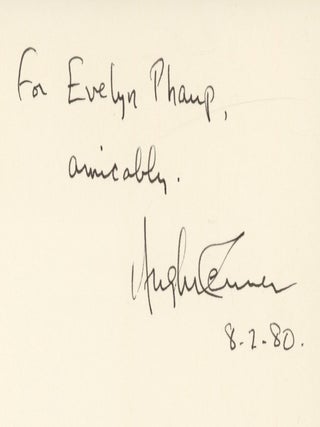 For Evelyn Phaup,
amicably.
Hugh Kenner
8.2.80.